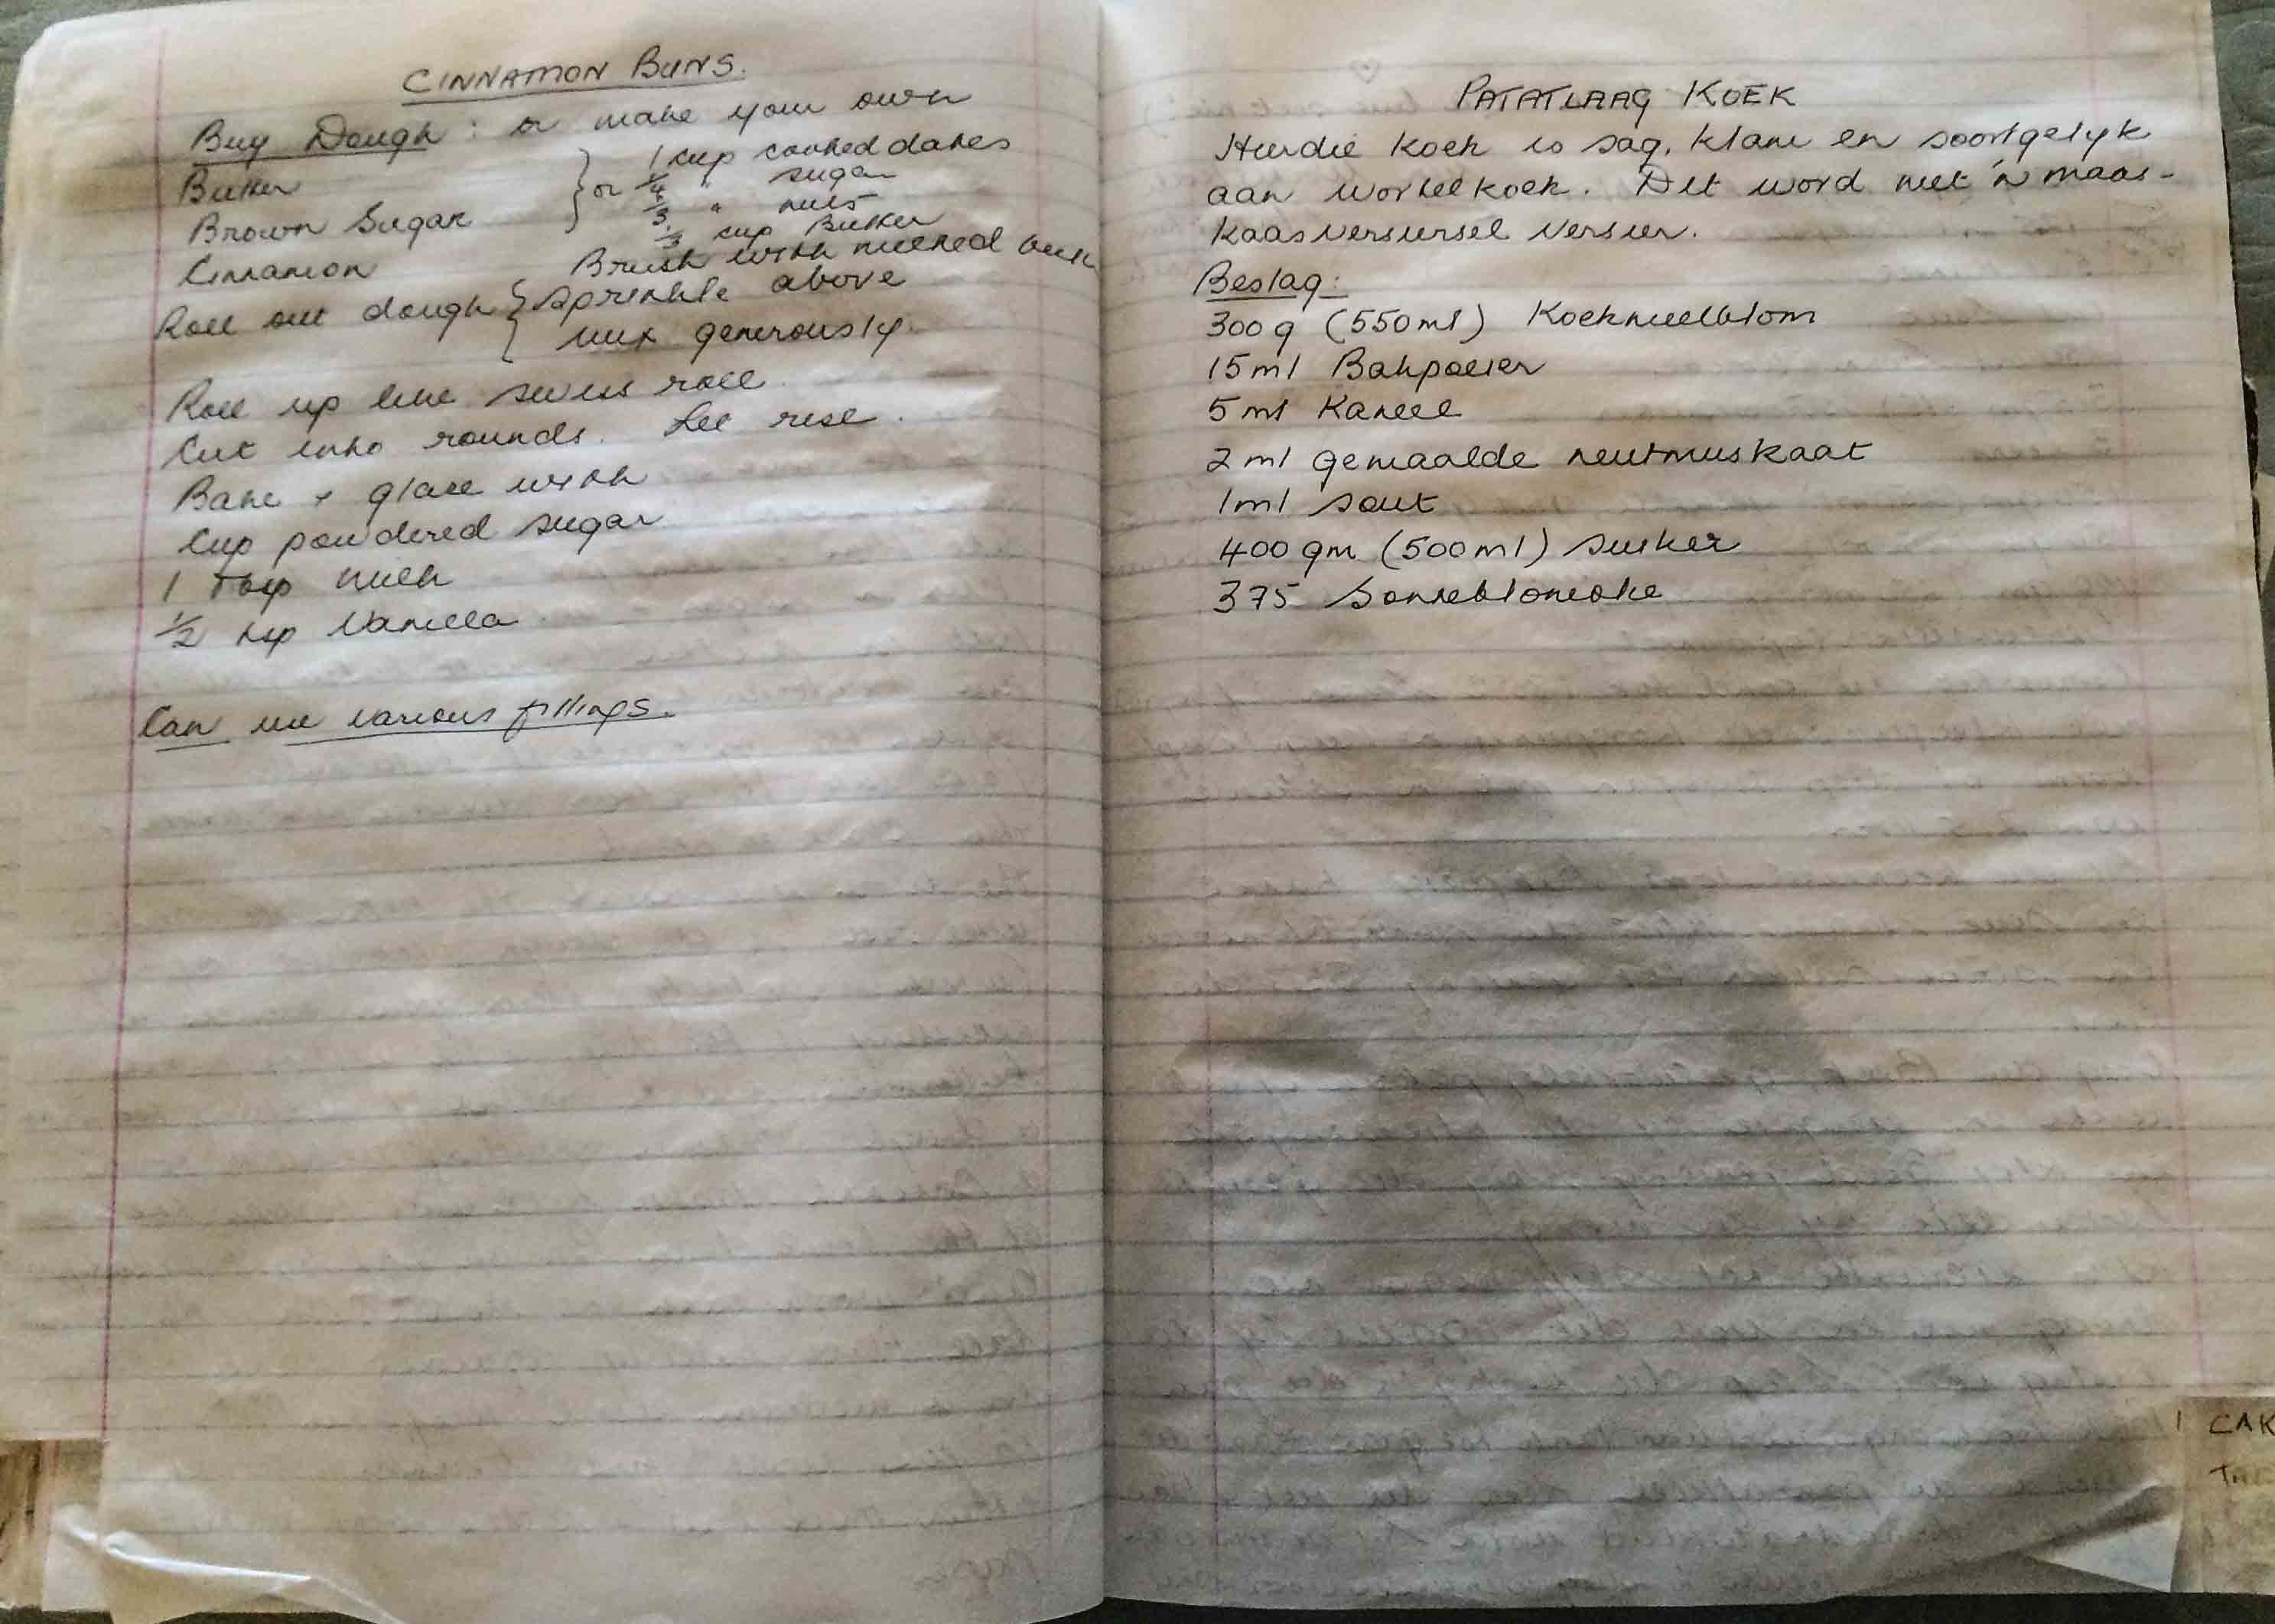 CINNAMON BUNS.
Buy Dough : or make your own
Butter } or 1 cup cooked dates
Brown Sugar 1/4 " sugar
1/3 " nuts
1/3 cup Butter
Cinnamon Brush with melted
Roll out dough { Sprinkle above
mix generously.
Roll up like swiss roll
Cut into rounds. Let rise.
Bake + glaze with
Cup powdered sugar
1 Tbsp milk
1/2 tsp Vanilla
Can use various fillings.
PATATLAAG KOEK
Hierdie koek is sag, klam en soortgelyk
aan wortelkoek. Dit word met 'n maas-
kaasversiersel versier.
Beslag:
300g (550ml) Koekmeelblom
15ml Bakpoeier
5ml Kaneel
2ml gemaalde neutmuskaat
1ml sout
400gm (500ml) suiker
375 Sonneblomolie
1 CAK